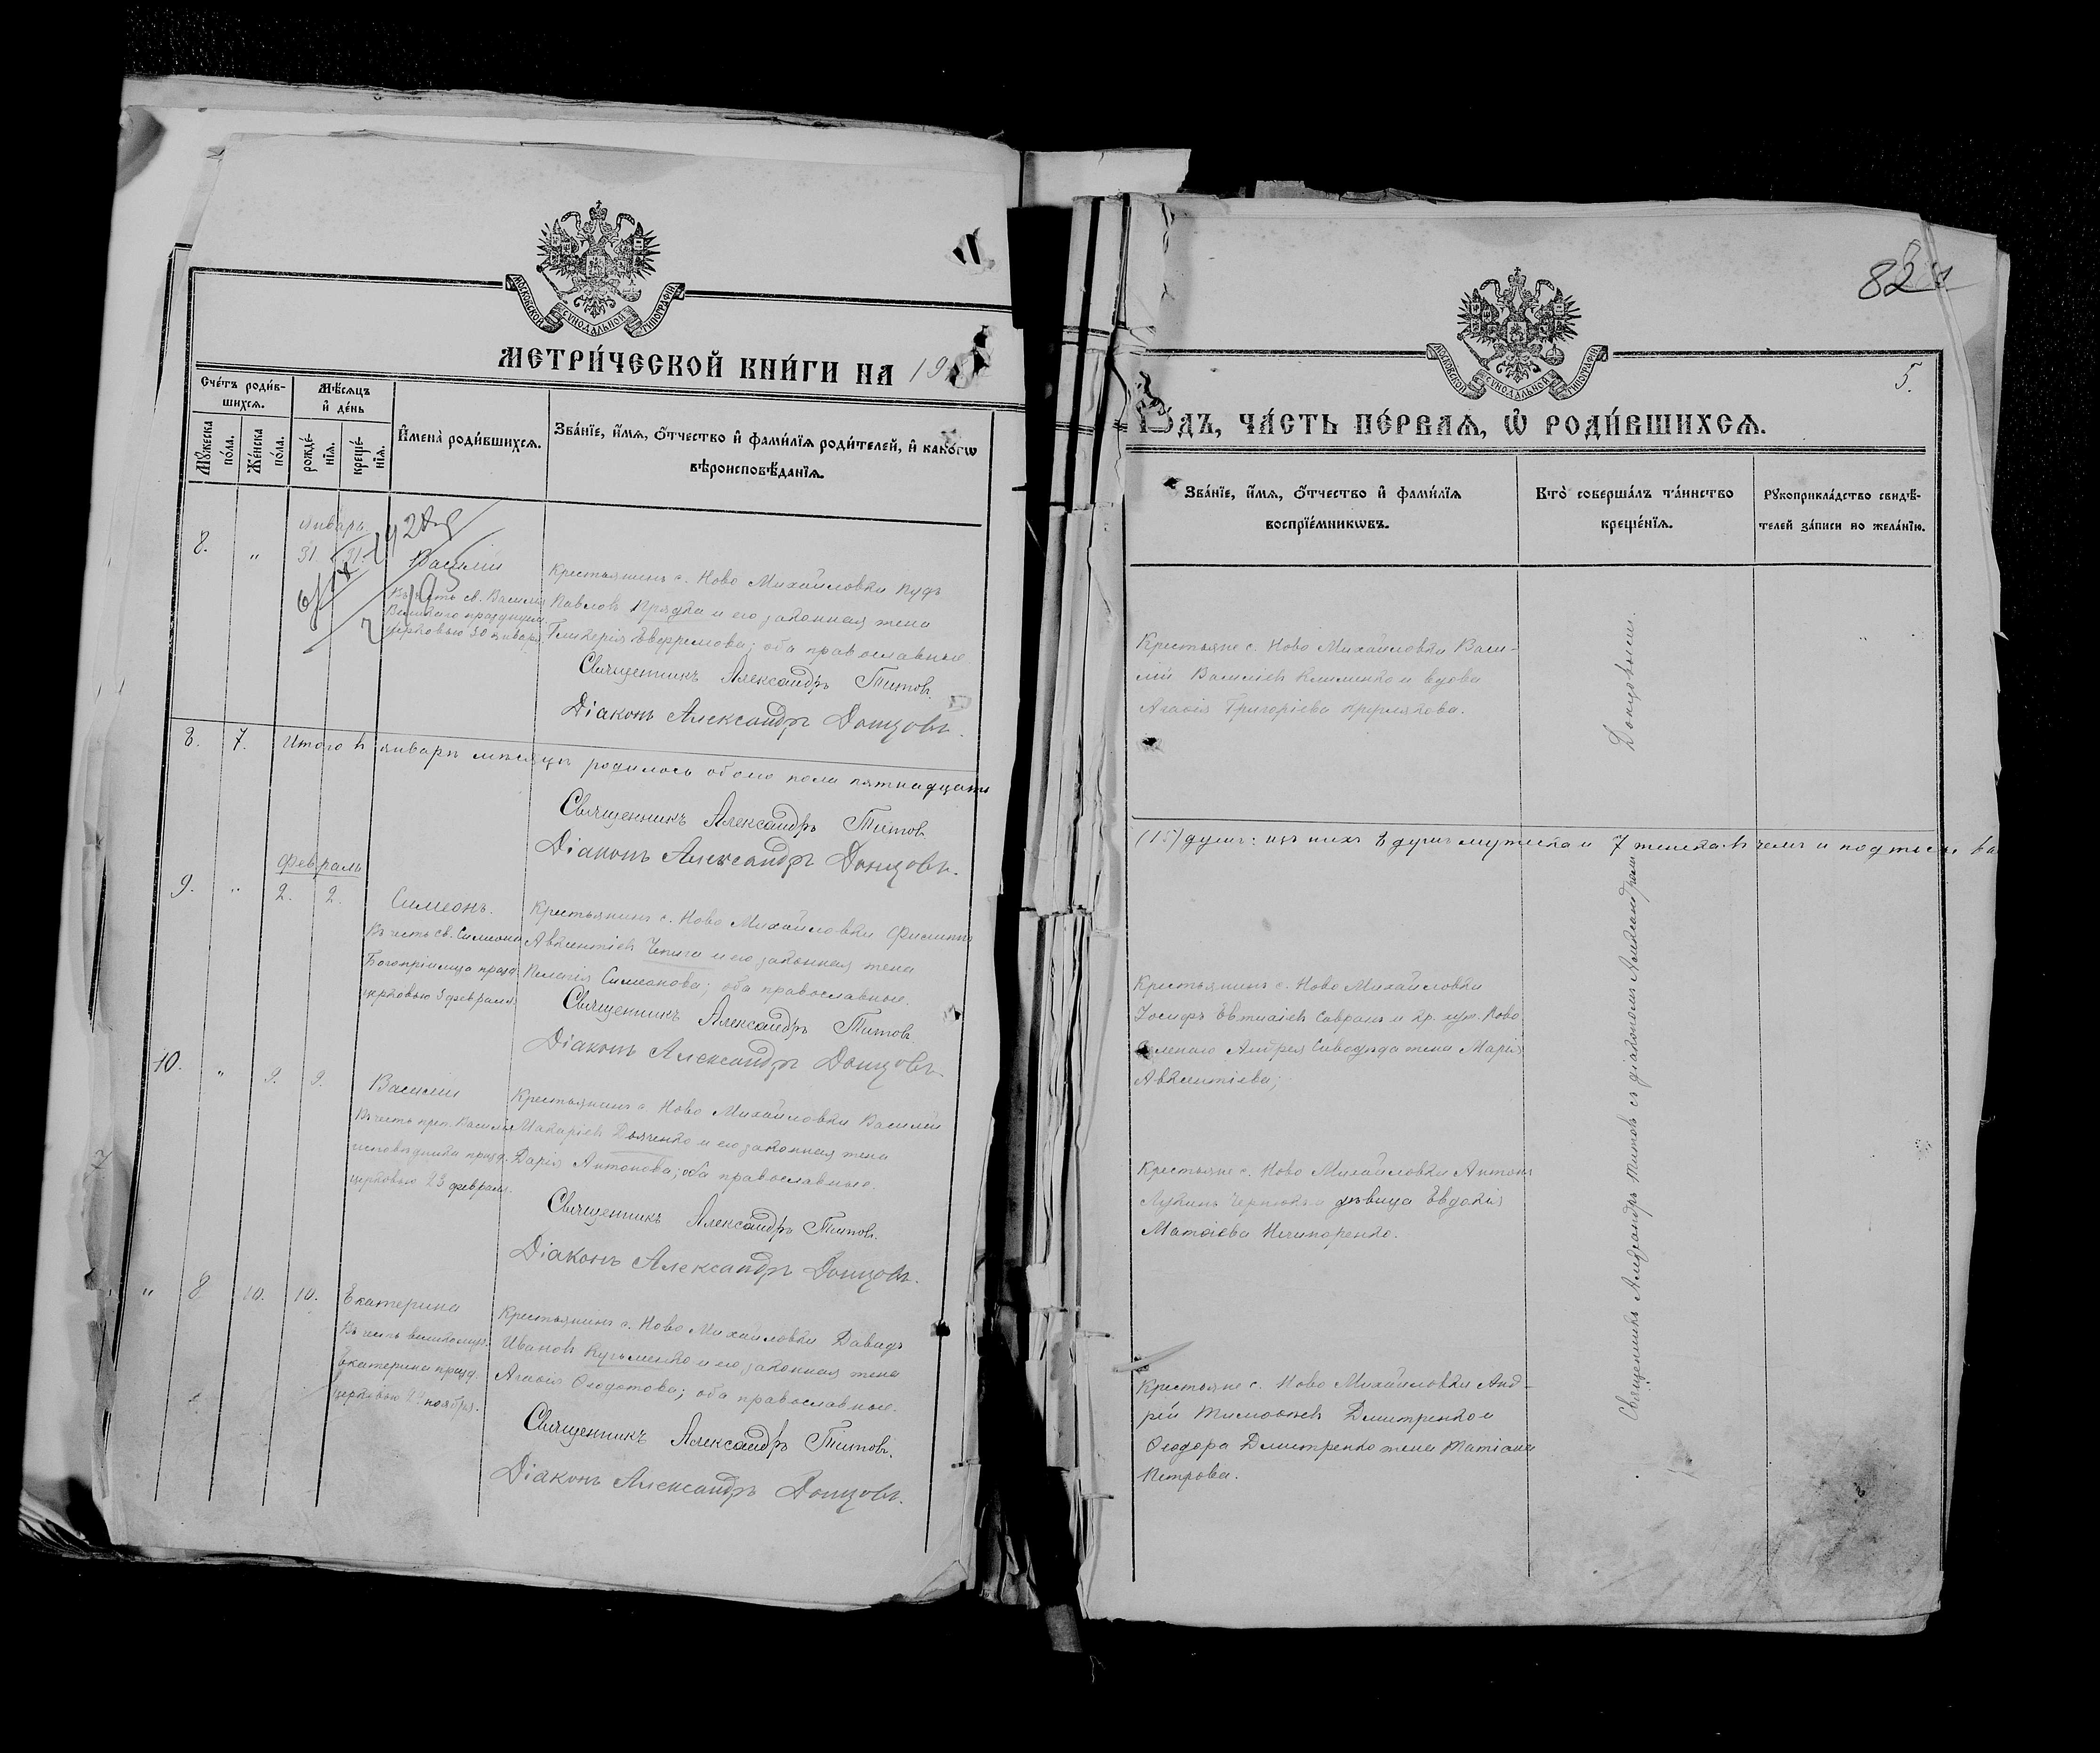 МОСКОВСКОЙ СУНОДАЛЬНОЙ ТИПОГРАФІИ
МЕТРИ́ЧЕСКОЙ КНИ́ГИ НА 19
Сче́тъ роди́в-
шихсѧ.
Мѣ́сѧцъ
и҆ де́нь
Мꙋ́жеска
по́ла.
Же́нска
по́ла.
рожде́-
нїѧ.
креще́-
нїѧ.
И҆мена̀ роди́вшихсѧ.
Зва́нїе, и҆́мѧ, ѻ҆́тчество и҆ фами́лїѧ роди́телей, и҆ како́гѡ
вѣроисповѣ́данїѧ.
январь
8. " 31. 31. Василій
Въ честь св. Василія
Великаго празднуем.
церковью 30 января
Крестьянинъ с. Ново Михайловки
Павловъ Прядка и его законная жена
Гликерія Ефремова; оба православные.
Священникъ Александръ Титовъ.
Діаконъ Александръ Донцовъ.
8. 7. Итого въ январѣ мѣсяцѣ родилось обоего пола пятнадцать
Священникъ Александръ Титовъ
Діаконъ Александръ Донцовъ.
февраль
9. " 2. 2. Симеонъ.
Въ честь св. Симеона
Богопріимца празд.
церковью 3 февраля
Крестьянинъ с. Ново Михайловки Филиппъ
Авксентіевъ Чепига и его законная жена
Пелагія Симеонова; оба православные.
Священникъ Александръ Титовъ
Діаконъ Александръ Донцовъ.
10. " 9. 9. Василій
Въ честь преп. Василія
исповѣдника празд.
церковью 28 февраля.
Крестьянинъ с. Ново Михайловки Василій
Макаріевъ Дьяченко и его законная жена
Дарія Антонова; оба православные.
Священникъ Александръ Титовъ.
Діаконъ Александръ Донцовъ.
" 8 10. 10. Екатерина
Въ честь великомуч.
Екатерины празд.
церковью 24 ноября.
Крестьянинъ с. Ново Михайловки Давидъ
Ивановъ Кузьменко и его законная жена
Агаѳія Ѳеодотова; оба православные.
Священникъ Александръ Титовъ.
Діаконъ Александръ Донцовъ.
82
5.
МОСКОВСКОЙ СУНОДАЛЬНОЙ ТИПОГРАФІИ
ГО́ДЪ, ЧА́СТЬ ПЕ́РВАѦ, Ѡ҆ РОДИ́ВШИХСѦ.
Зва́нїе, и҆́мѧ, ѻ҆́тчество и҆ фами́лїѧ
воспрїе́мникѡвъ.
Кто̀ соверша́лъ та́инство
креще́нїѧ.
Рꙋкоприкла́дство свидѣ́-
телей за́писи по жела́нїю.
Крестьяне с. Ново Михайловки Васи-
лій Васильевъ Клименко и вдова
Агаѳія Григоріева
Донцовымъ.
(15) душъ: изъ нихъ 8 душъ мужеска и 7 женска въ чемъ и подпис
Крестьянинъ с. Ново Михайловки
Іосифъ Евтихіевъ Савранъ и кр. Ново
Андрея Сивогуда жена Марія
Авксентіева;
Крестьяне с. Ново Михайловки Антонъ
Лукинъ и дѣвица Евдокія
Матѳіева Нечипоренко.
Крестьяне с. Ново Михайловки Анд-
рей Тимоѳеевъ Дмитренко и
Ѳеодора Дмитренко жена Татіана
Петрова.
Священникъ Александръ Титовъ съ діакономъ Александромъ